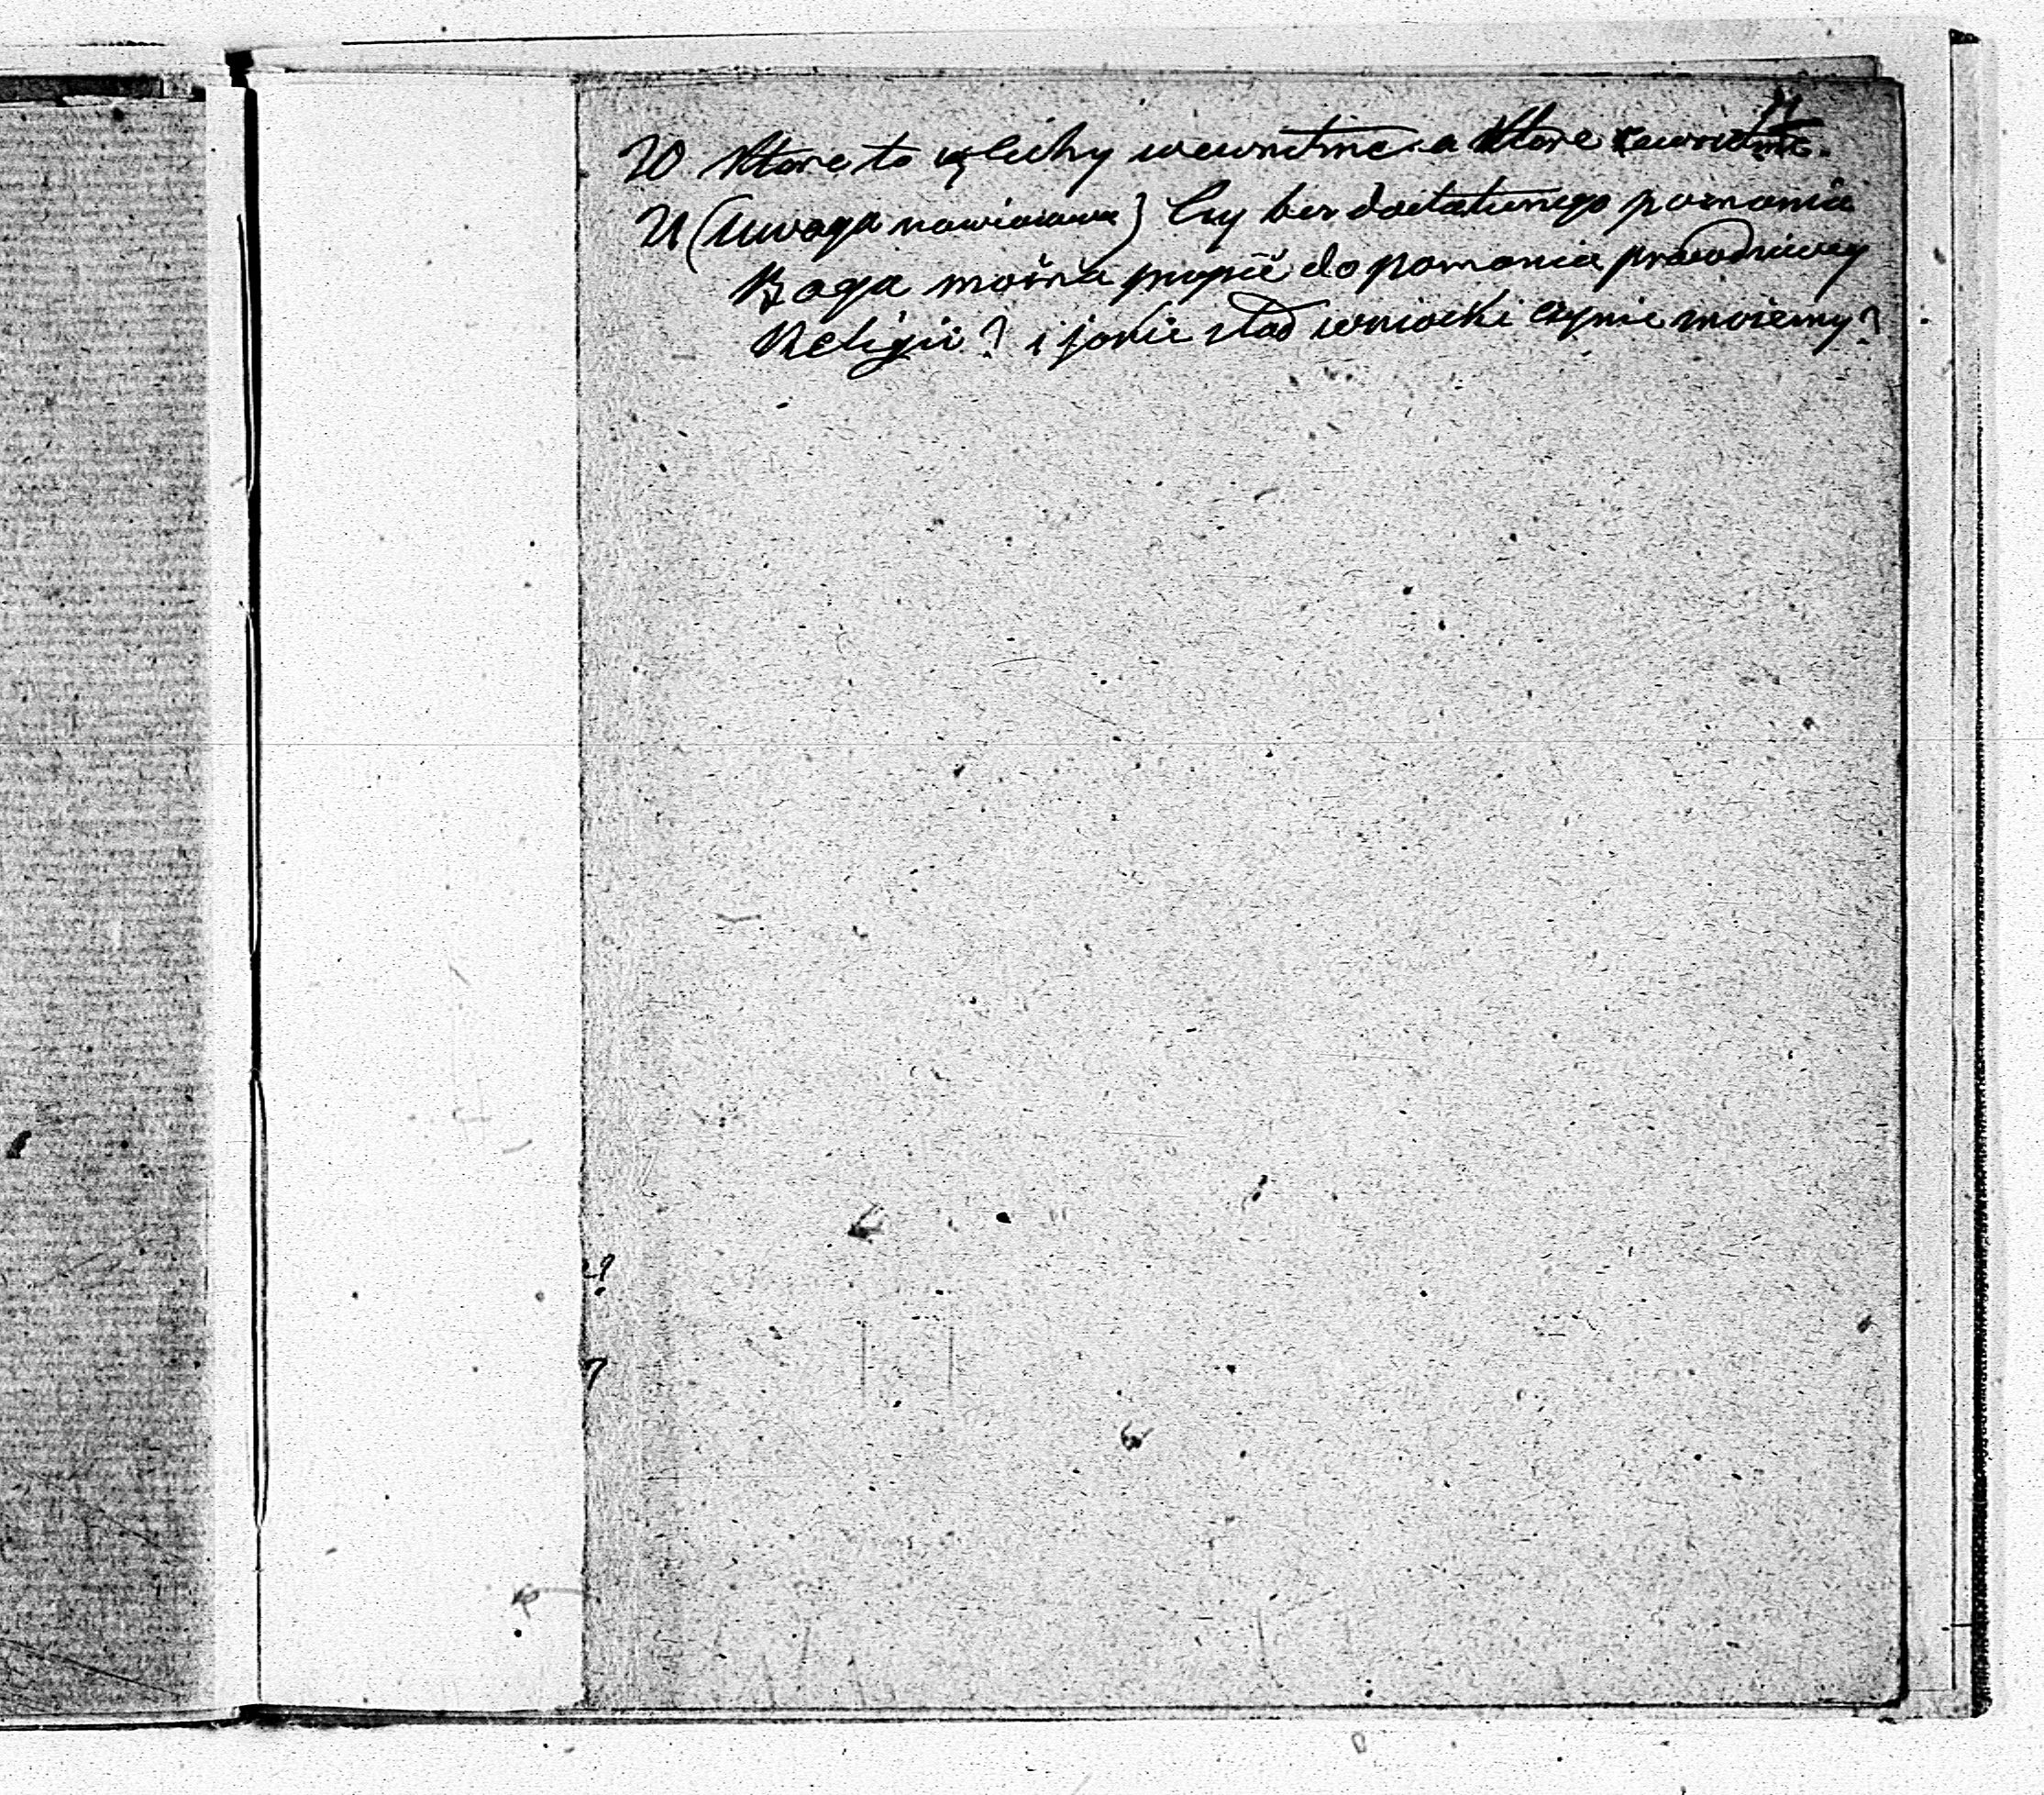 20 Ktore to są cechy wewnetrzne a ktore zewnetrzne.
21 (Uwaga nawiasowa) Czy bez dostatecznego poznania
Boga można przyjść do poznania prawdziwey
Religii? i jakie stąd wnioski czynić możemy?